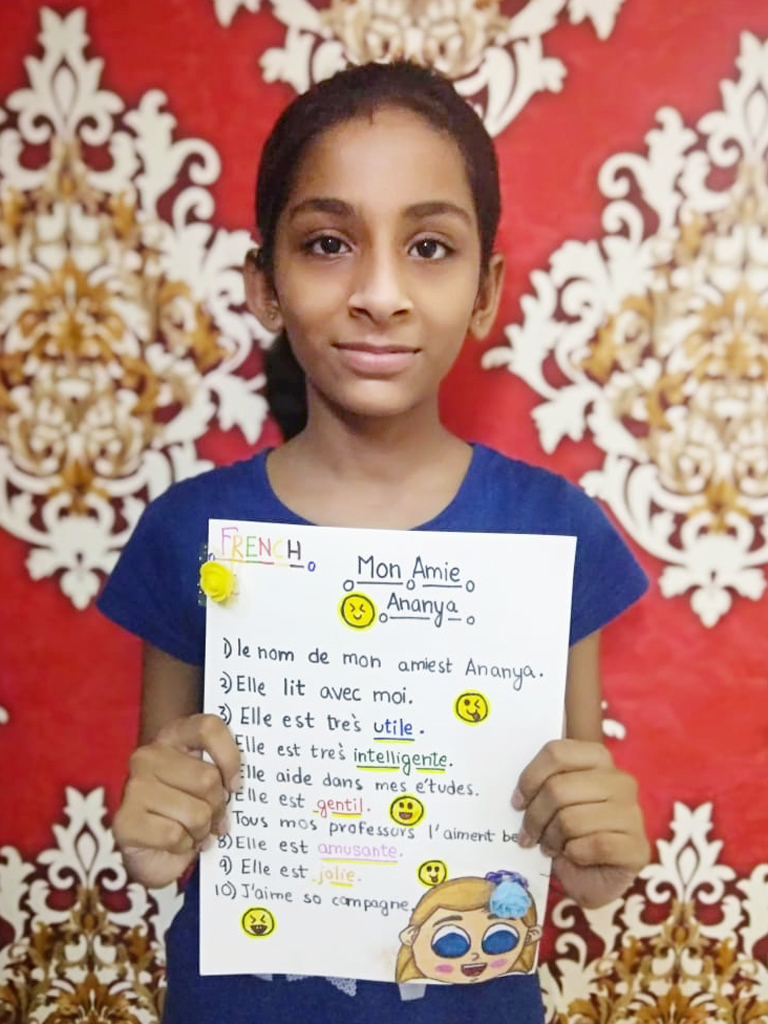 FRENCH
Mon Amie
Ananya
1) le nom de mon amiest Ananya.
2) Elle lit avec moi.
3) Elle est tre's utile.
Elle est tre's intelligente.
Elle aide dans mes e'tudes.
) Elle est gentil.
Tous mos professurs l'aiment be
8) Elle est amusante.
9) Elle est jolie.
10) J'aime so compagne.